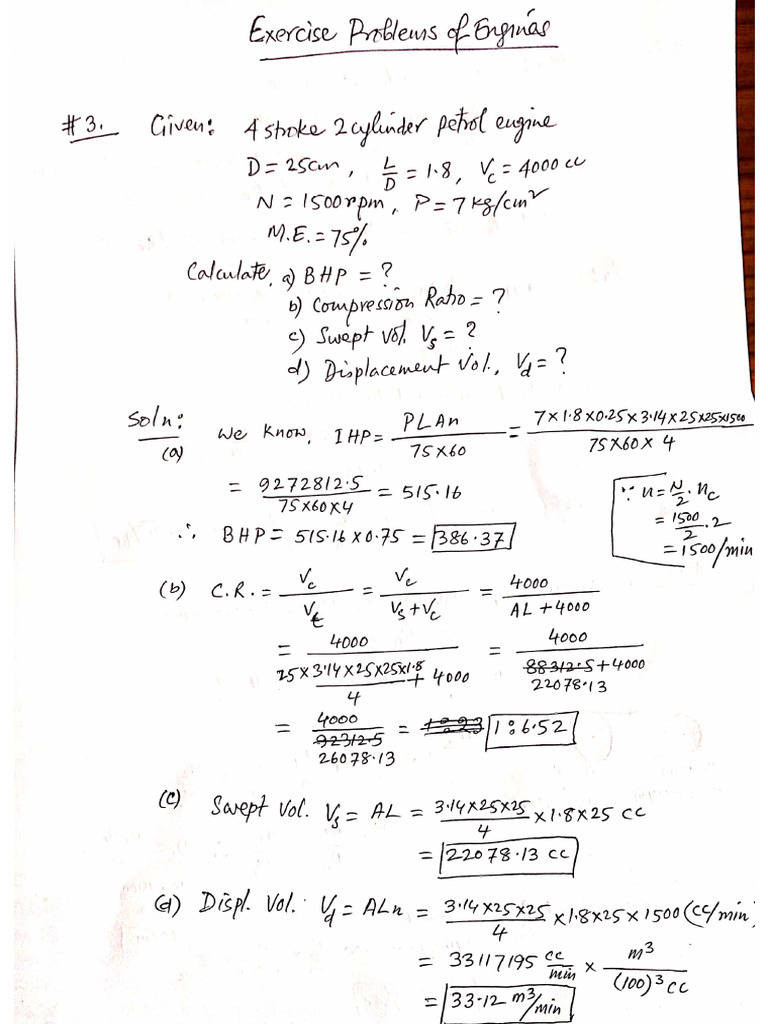 Exercise Problems of Engines
#3. Given: 4 stroke 2 cylinder petrol engine
D = 25cm, L/D = 1.8, Vc = 4000 cc
N = 1500 rpm, P = 7 kg/cm²
M.E. = 75%
Calculate, a) BHP = ?
b) Compression Ratio = ?
c) Swept Vol. Vs = ?
d) Displacement Vol., Vd = ?
Soln:
(a) We Know, IHP = PLAn / 75×60 = 7×1.8×0.25×3.14×25×25×1500 / 75×60×4
= 9272812.5 / 75×60×4 = 515.16
∵ n = N/2 . nc
= 1500/2 . 2
= 1500/min
∴ BHP = 515.16 × 0.75 = 386.37
(b) C.R. = Vc / Vt = Vc / Vs + Vc = 4000 / AL + 4000
= 4000 / 25×3.14×25×25×1.8 / 4 + 4000 = 4000 / 88312.5 + 4000
22078.13
= 4000 / 92312.5 = 1:6.52
26078.13
(c) Swept Vol. Vs = AL = 3.14×25×25 / 4 × 1.8×25 cc
= 22078.13 cc
(d) Displ. Vol. Vd = ALn = 3.14×25×25 / 4 × 1.8×25×1500 (cc/min)
= 33117195 cc/min × m³ / (100)³ cc
= 33.12 m³/min